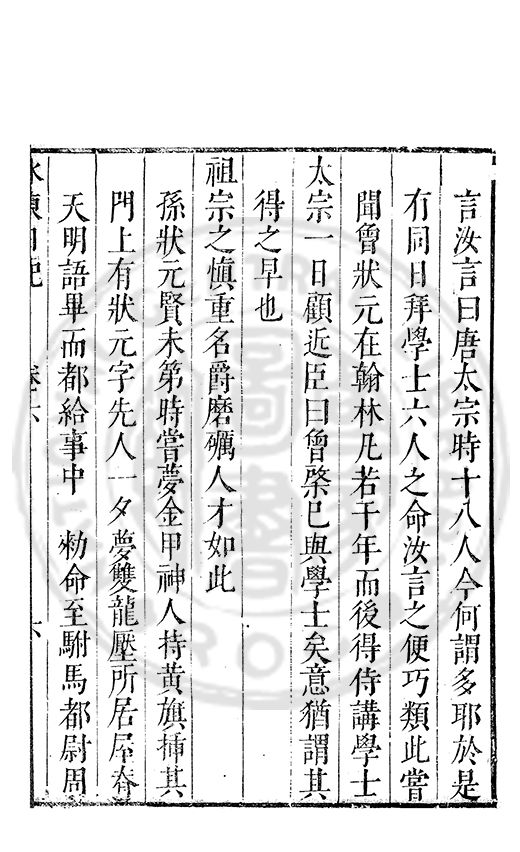 言汝言曰唐太宗時十八人今何謂多耶於是
有同日拜學士六人之命汝言之便巧類此嘗
聞曾狀元在翰林凡若干年而後得侍講學士
太宗一日顧近臣曰曾棨已與學士矣意猶謂其
得之早也
祖宗之慎重名爵磨礪人才如此
孫狀元賢未第時嘗夢金甲神人持黃旗插其
門上有狀元字先人一夕夢雙龍壓所居屋脊
天明語畢而都給事中 勑命至駙馬都尉周
水東日記 卷六 六